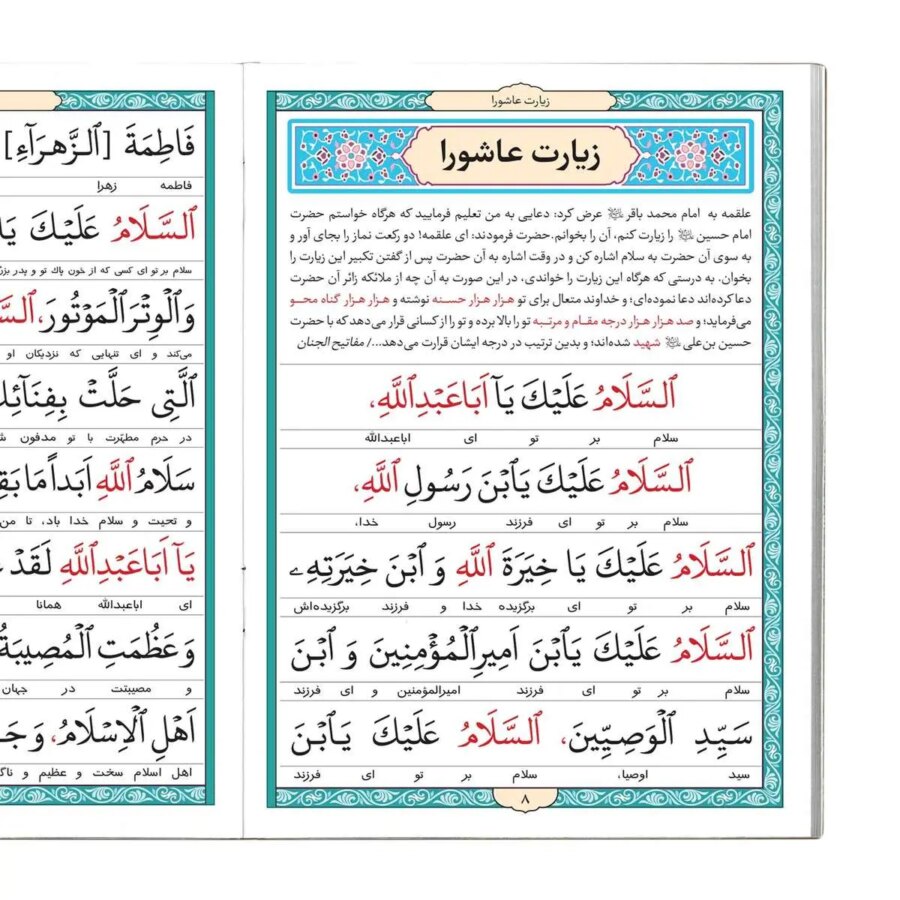 زیارت عاشورا
زیارت عاشورا
علقمه به امام محمد باقر عرض کرد: دعایی به من تعلیم فرمایید که هرگاه خواستم حضرت
امام حسین را زیارت کنم، آن را بخوانم. حضرت فرمودند: ای علقمه! دو رکعت نماز را بجای آور و
به سوی آن حضرت به سلام اشاره کن و در وقت اشاره به آن حضرت پس از گفتن تکبیر این زیارت را
بخوان. به درستی که هرگاه این زیارت را خواندی، در این صورت به آن چه از ملائکه زائر آن حضرت
دعا کرده‌اند دعا نموده‌ای؛ و خداوند متعال برای تو هزار هزار حسنه نوشته و هزار هزار گناه محو
می‌فرماید؛ و صد هزار هزار درجه مقام و مرتبه تو را بالا برده و تو را از کسانی قرار می‌دهد که با حضرت
حسین بن‌علی شهید شده‌اند؛ و بدین ترتیب در درجه ایشان قرارت می‌دهد.../ مفاتیح الجنان
اَلسَّلَامُ عَلَیْكَ یَآ اَبَاعَبْدِاللَّهِ،
سلام بر تو ای اباعبدالله
اَلسَّلَامُ عَلَیْكَ یَابْنَ رَسُولِ اللَّهِ،
سلام بر تو ای فرزند رسول خدا،
اَلسَّلَامُ عَلَیْكَ یَا خِیَرَةَ اللَّهِ وَ ابْنَ خِیَرَتِهِ
سلام بر تو ای برگزیده خدا و فرزند برگزیده‌اش
اَلسَّلَامُ عَلَیْكَ یَابْنَ اَمِیرِالْمُؤْمِنِینَ وَ ابْنَ
سلام بر تو ای فرزند امیرالمؤمنین و ای فرزند
سَیِّدِ الْوَصِیِّینَ، اَلسَّلَامُ عَلَیْكَ یَابْنَ
سید اوصیا، سلام بر تو ای فرزند
۸
فَاطِمَةَ [الزَّهرَآءِ]
فاطمه زهرا
اَلسَّلَامُ عَلَیْكَ
سلام بر تو ای کسی که از خون پاك تو و پدر
وَالْوِتْرَ الْمَوْتُورَ،
می‌کند و ای تنهایی که نزدیکان او
الَّتِی حَلَّتْ
در حرم مطهّرت با تو مدفون
سَلَامُ اللَّهِ اَبَداً مَا
و تحیت و سلام خدا باد، تا من
یَآ اَبَاعَبْدِاللَّهِ لَقَدْ
ای اباعبدالله همانا
وَ عَظُمَتِ الْمُصِیبَةُ
و مصیبتت در جهان
اَهْلِ الْاِسْلَامِ، وَ
اهل اسلام سخت و عظیم و